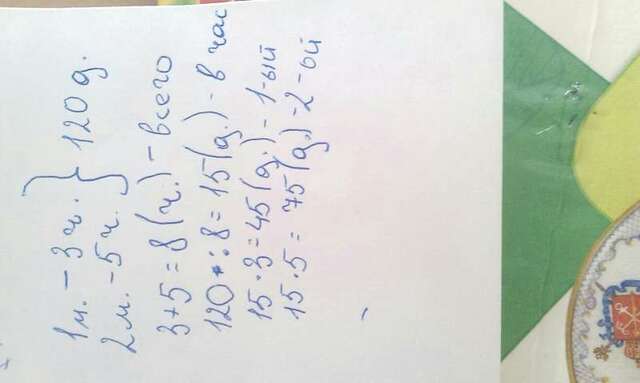 1 м. - 3 ч. } 120 д.
2 м. - 5 ч.
3+5=8 (ч.) - всего
120 : 8 = 15 (д.) - в час
15 · 3 = 45 (д.) - 1-ый
15 · 5 = 75 (д.) - 2-ой